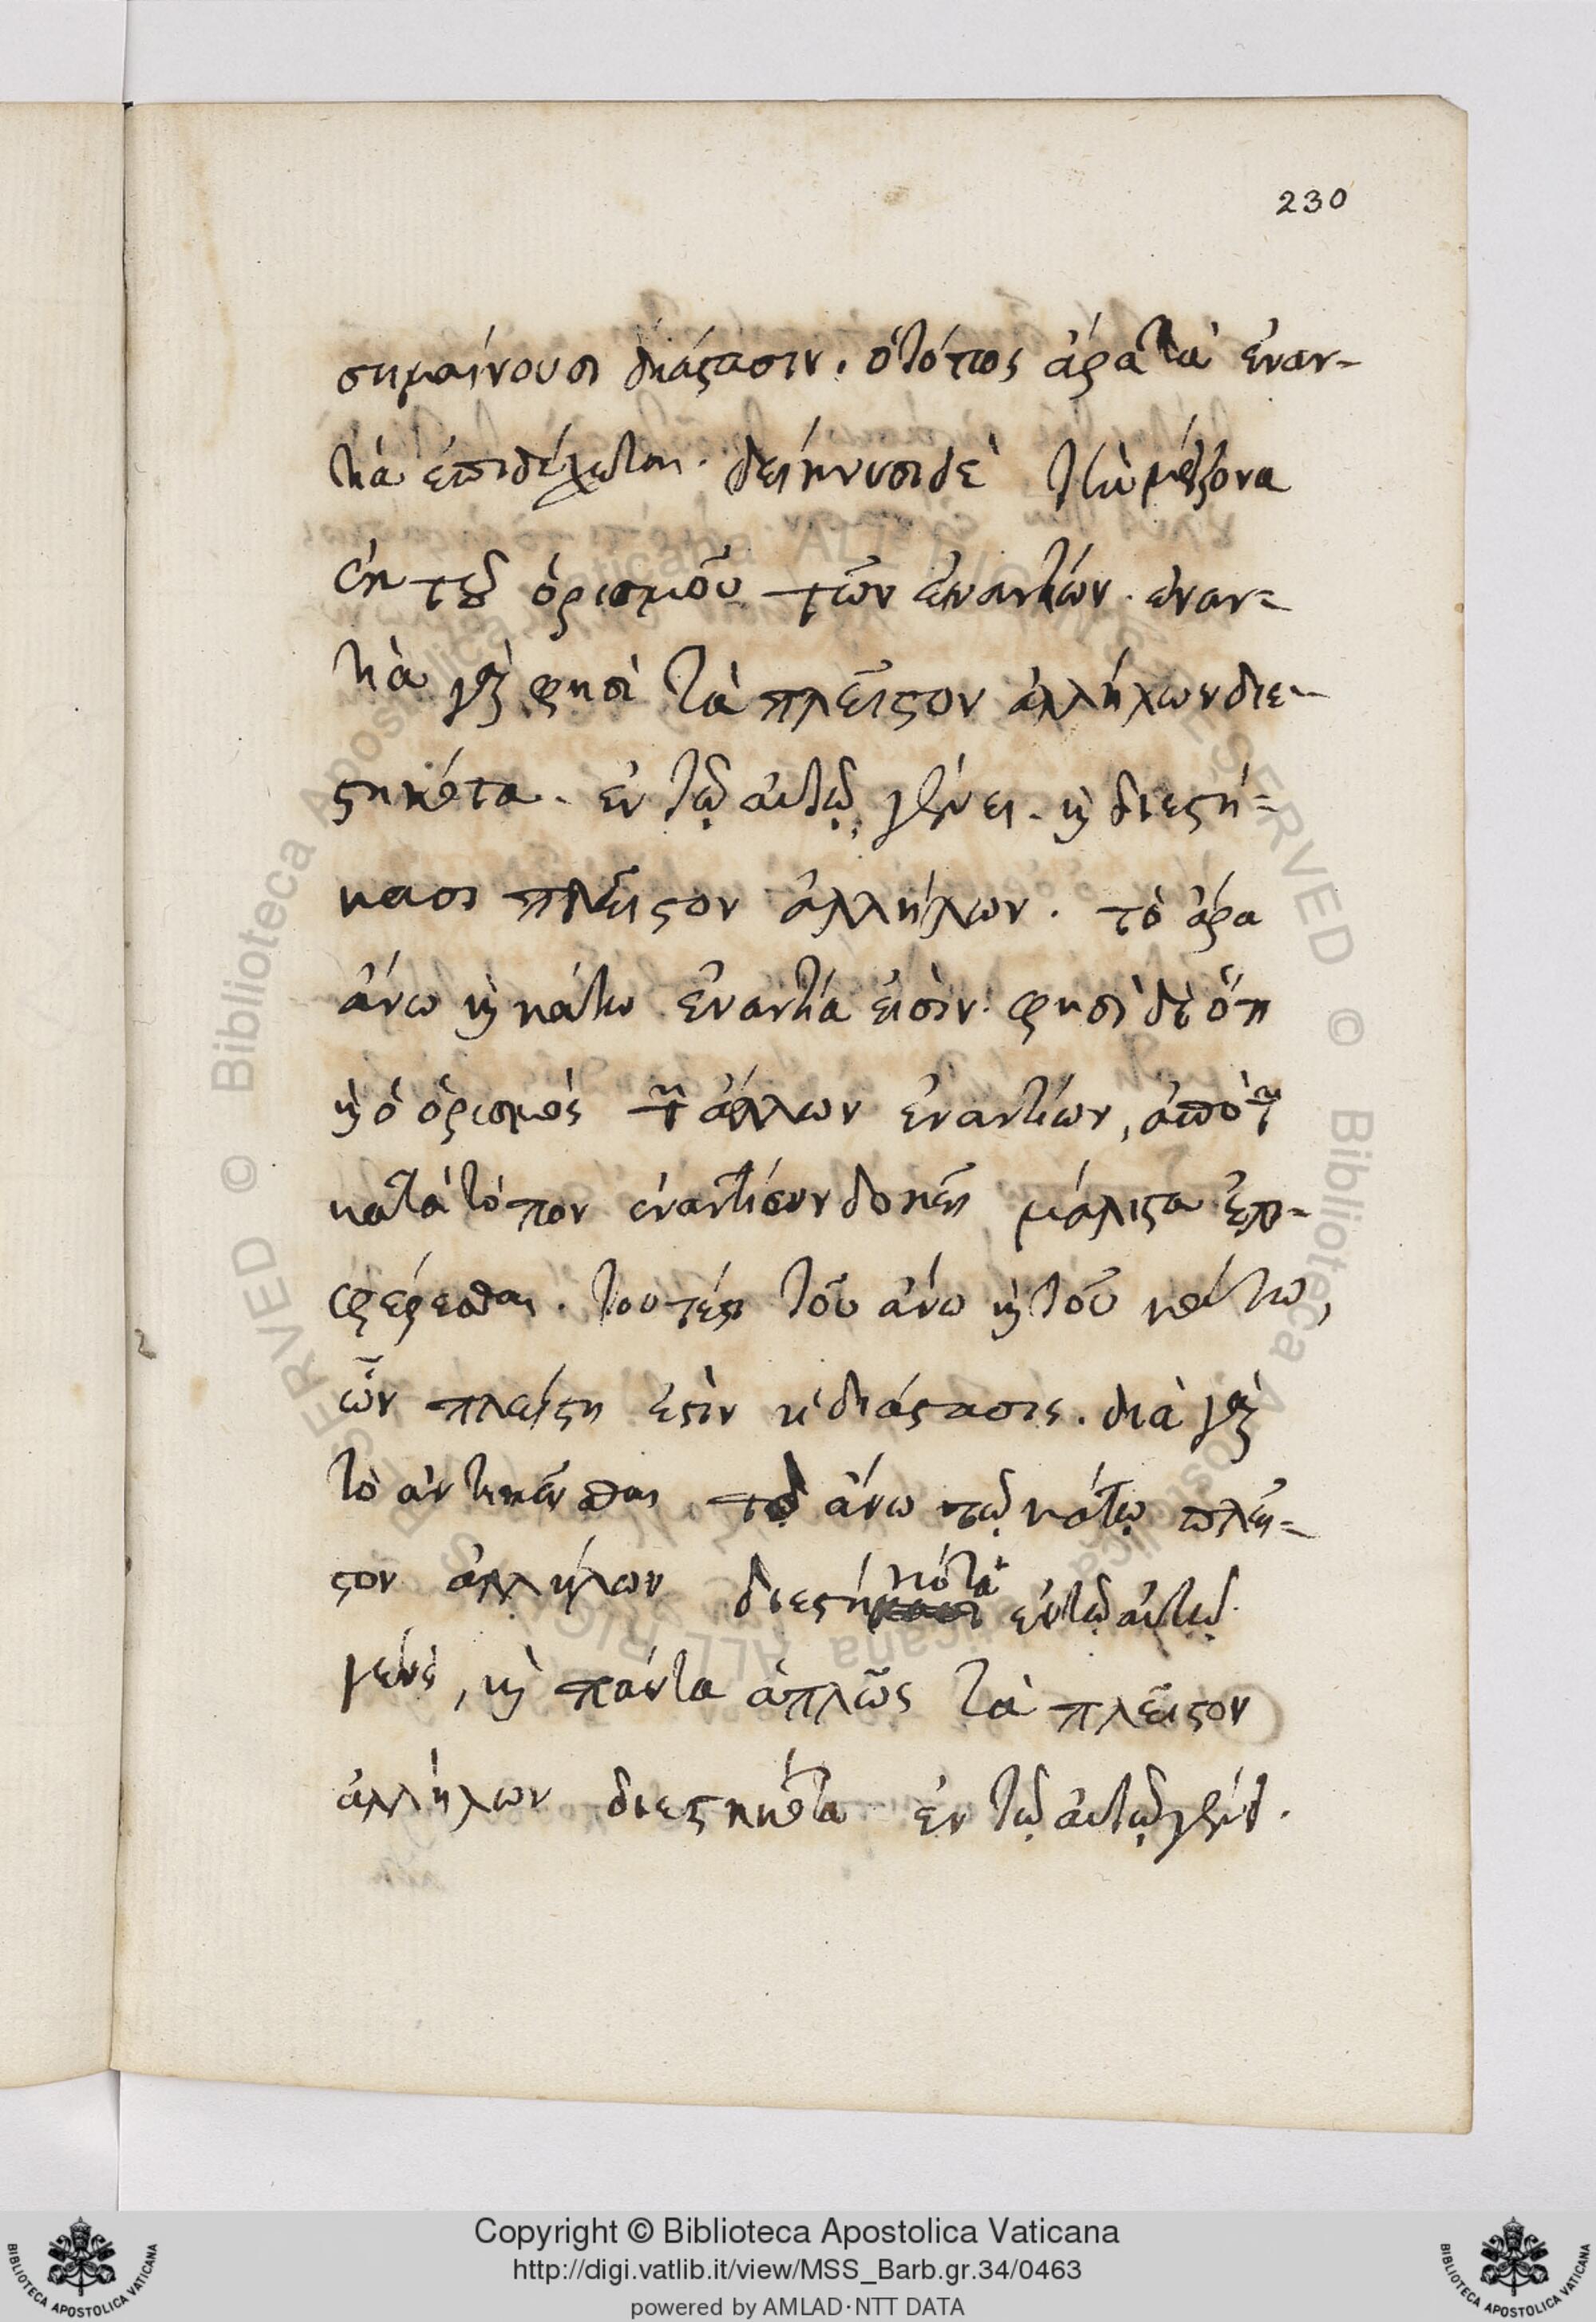 230
σημαίνουσι διάστασιν. ὁ τόπος ἄρα τὰ ἐναν-
τία ἐπιδέχεται. δείκνυσι δὲ τὴν μείζονα
ἐκ τοῦ ὁρισμοῦ τῶν ἐναντίων. ἐναν-
τία γάρ φησι τὰ πλεῖστον ἀλλήλων διε-
στηκότα. ἐν τῷ αὐτῷ γένει. καὶ διεστή-
κασι πλεῖστον ἀλλήλων. τὸ ἄρα
ἄνω καὶ κάτω ἐναντία εἰσίν. φησὶ δὲ ὅτι
καὶ ὁ ὁρισμὸς τῶν ἄλλων ἐναντίων, ἀπὸ τῶν
κατὰ τόπον ἐναντίων δοκεῖ μάλιστα ἐπι-
φέρεσθαι. τουτέστι τοῦ ἄνω καὶ τοῦ κάτω,
ὧν πλείστη ἐστὶν ἡ διάστασις. διὰ γὰρ
τὸ ἀντικεῖσθαι τὸ ἄνω τῷ κάτω πλεῖ-
στον ἀλλήλων διεστηκότα ἐν τῷ αὐτῷ
γένει, καὶ πάντα ἁπλῶς τὰ πλεῖστον
ἀλλήλων διεστηκότα ἐν τῷ αὐτῷ γένει.
Copyright © Biblioteca Apostolica Vaticana
http://digi.vatlib.it/view/MSS_Barb.gr.34/0463
powered by AMLAD·NTT DATA